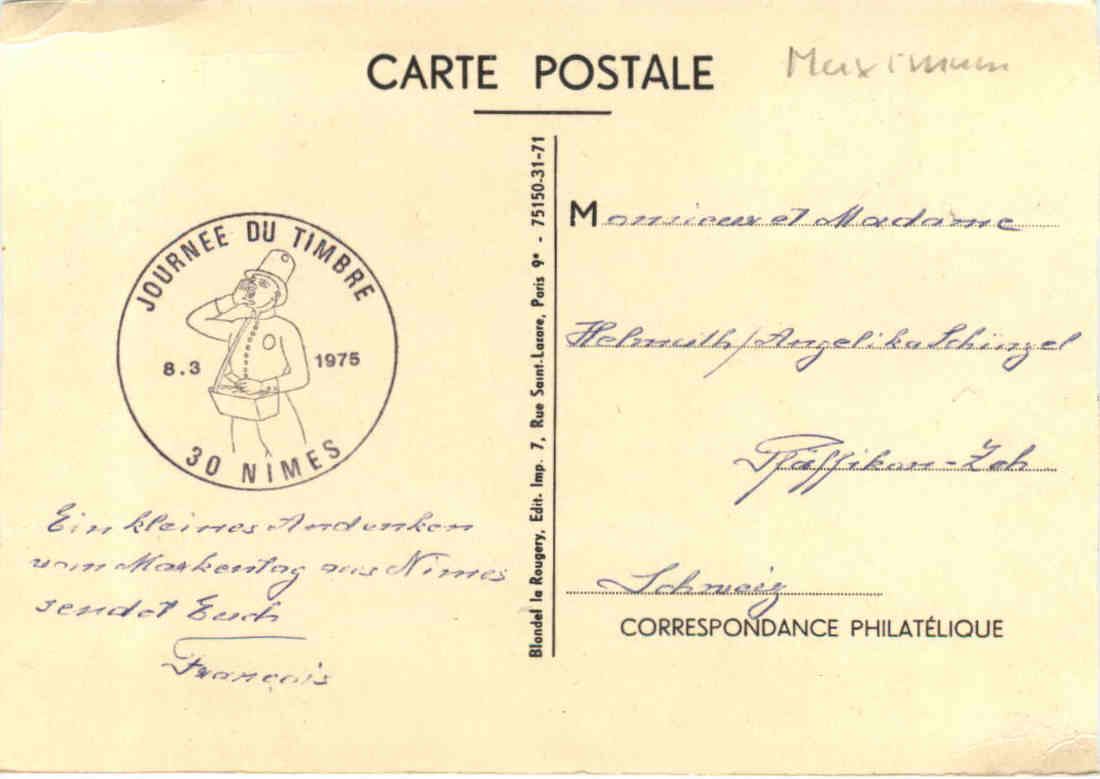 CARTE POSTALE
Maximum
JOURNEE DU TIMBRE
8.3 1975
30 NIMES
Ein kleines Andenken
vom Markentag aus Nîmes
sendet Euch
François
Blondel la Rougery, Edit. Imp. 7, Rue Saint-Lazare, Paris 9e - 75150-31-71
Monsieur et Madame
Helmuth/Angelika Schinzel
Pfäffikon-Zch
Schweiz
CORRESPONDANCE PHILATÉLIQUE